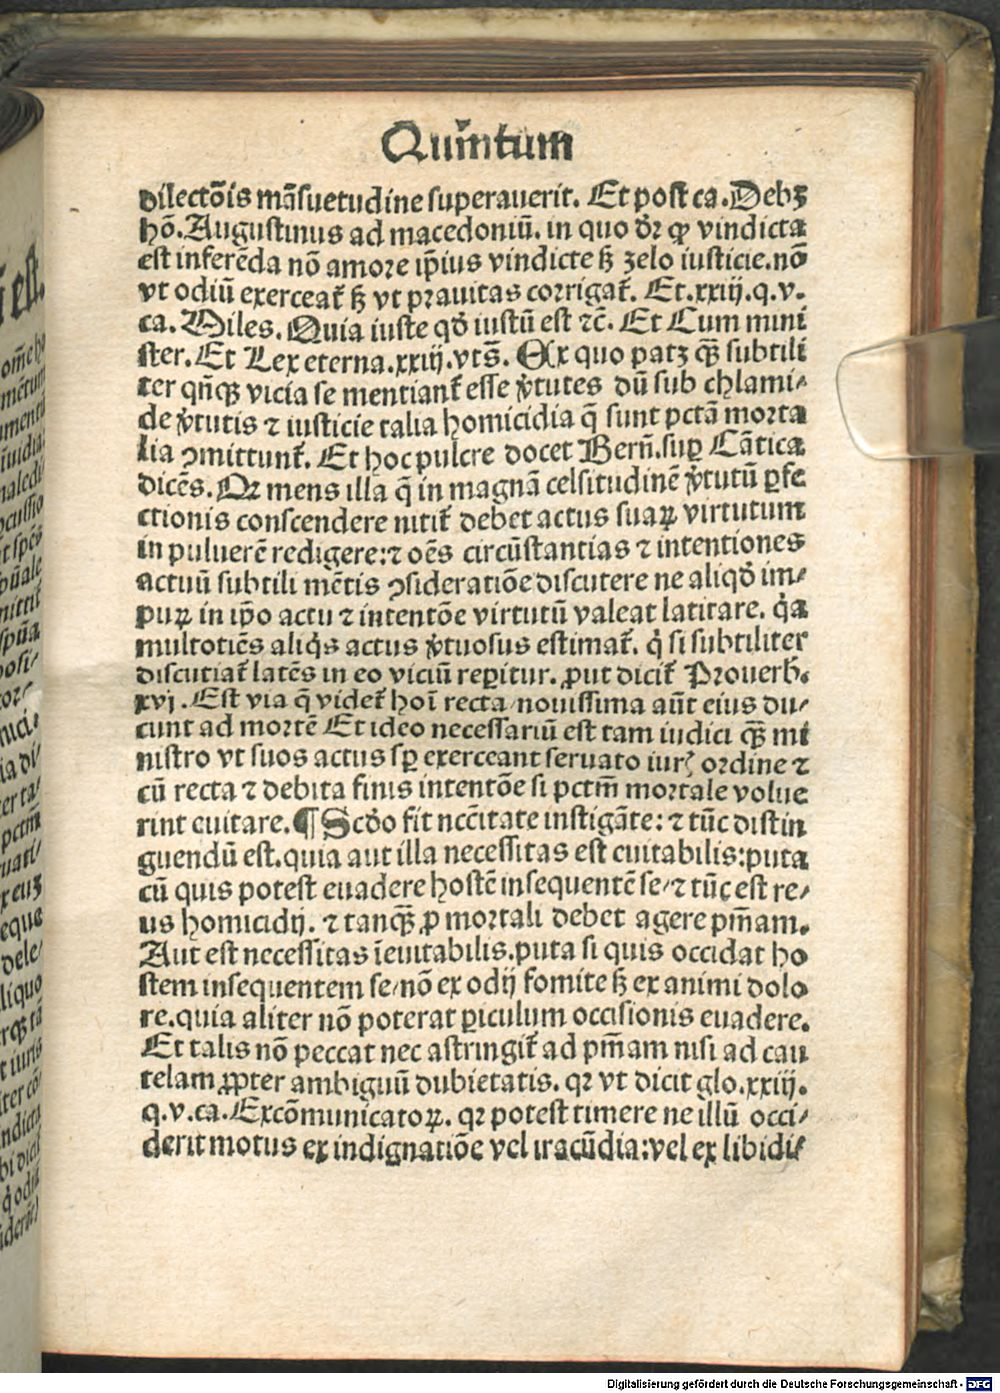 Quintum
dilectōis māsuetudine superauerit. Et post ca. Debꝫ
hō. Augustinus ad macedoniū. in quo dr̄ ꝙ vindicta
est inferēda nō amore ip̄ius vindicte ß zelo iusticie. nō
vt odiū exerceat᷑ ß vt prauitas corrigat᷑. Et. xxiij. q. v.
ca. Miles. Quia iuste qd̓ iustū est ⁊c̄. Et Cum mini
ster. Et Lex eterna. xxiij. vts̄. Ex quo patꝫ qȝ̄ subtili
ter qn̄qȝ vicia se mentiant᷑ esse v̓tutes dū sub chlami⸗
de v̓tutis ⁊ iusticie talia homicidia q̄ sunt pctā morta
lia ꝯmittunt᷑. Et hoc pulcre docet Bern̄. suꝑ Cātica
dicēs. Qꝛ mens illa q̄ in magnā celsitudinē v̓tutū ꝑfe
ctionis conscendere nitit᷑ debet actus suaꝝ virtutum
in puluerē redigere: ⁊ oēs circūstantias ⁊ intentiones
actuū subtili mētis ꝯsideratiōe discutere ne aliqd̓ im⸗
puꝝ in ip̄o actu ⁊ intentōe virtutū valeat latitare. q̓a
multotiēs aliq̓s actus v̓tuosus estimat᷑. q̓ si subtiliter
discutiat᷑ latēs in eo viciū reꝑitur. ꝓut dicit᷑ Prouerb.
xvj. Est via q̄ videt᷑ hoī recta / nouissima aūt eius du⸗
cunt ad mortē Et ideo necessariū est tam iudici qȝ̄ mi
nistro vt suos actus sꝑ exerceant seruato iurꝭ ordine ⁊
cū recta ⁊ debita finis intentōe si pctm̄ mortale volue
rint euitare. ¶ Scd̓o fit nccītate instigāte: ⁊ tūc distin
guendū est. quia aut illa necessitas est euitabilis: puta
cū quis potest euadere hostē insequentē se / ⁊ tūc est re⸗
us homicidij. ⁊ tanqȝ̄ ꝓ mortali debet agere pn̄iam.
Aut est necessitas īeuitabilis. puta si quis occidat ho
stem insequentem se / nō ex odij fomite ß ex animi dolo
re. quia aliter nō poterat ꝑiculum occisionis euadere.
Et talis nō peccat nec astringit᷑ ad pn̄iam nisi ad cau
telam ꝓpter ambiguū dubietatis. qꝛ vt dicit glo. xxiij.
q. v. ca. Excōmunicatoꝝ. qꝛ potest timere ne illū occi⸗
derit motus ex indignatiōe vel iracūdia: vel ex libidi⸗
Digitalisierung gefördert durch die Deutsche Forschungsgemeinschaft - DFG